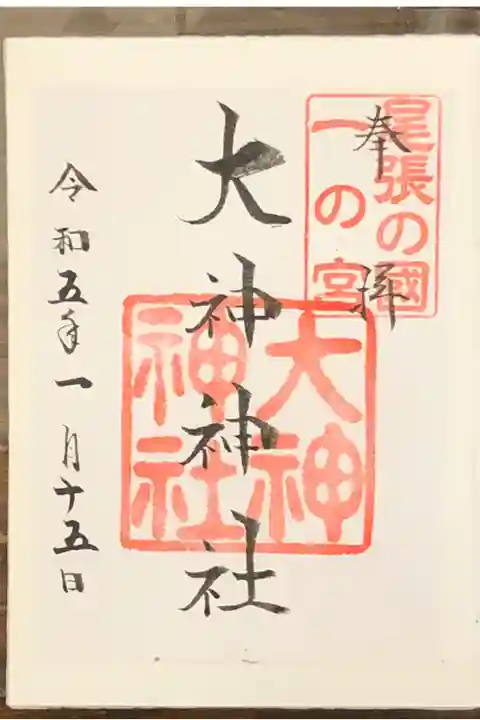 奉拝
尾張の國
一の宮
大神神社
大神
神社
令和五年一月十五日